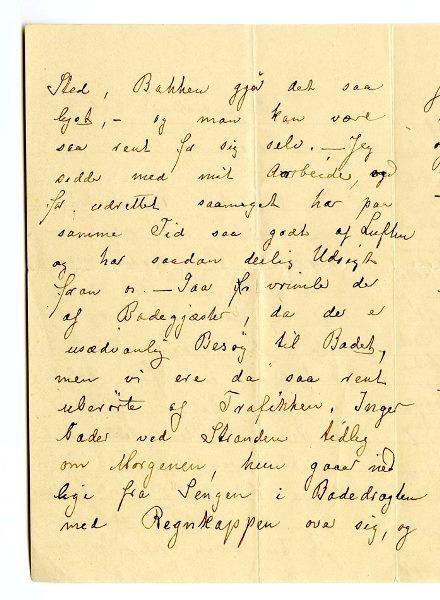 Sted, Bakken gjør det saa
lyst, – og man kan være
saa rent for sig selv. – Jeg
sidder med mit Aarbeide, og
før udrettet saameget har paa
samme Tid saa godt af Luften
og har saadan deilig Udsigt
foran os. – Saa vrimle der
af Badegjæster, da der er
usædvanlig Besøg til Badet,
men vi ere da saa rent
uberørte af Trafikken. Inger
bader ved Stranden tidlig
om Morgenen, hun gaaer ned
lige fra Sengen i Badedragten
med Regnkappen over sig, og